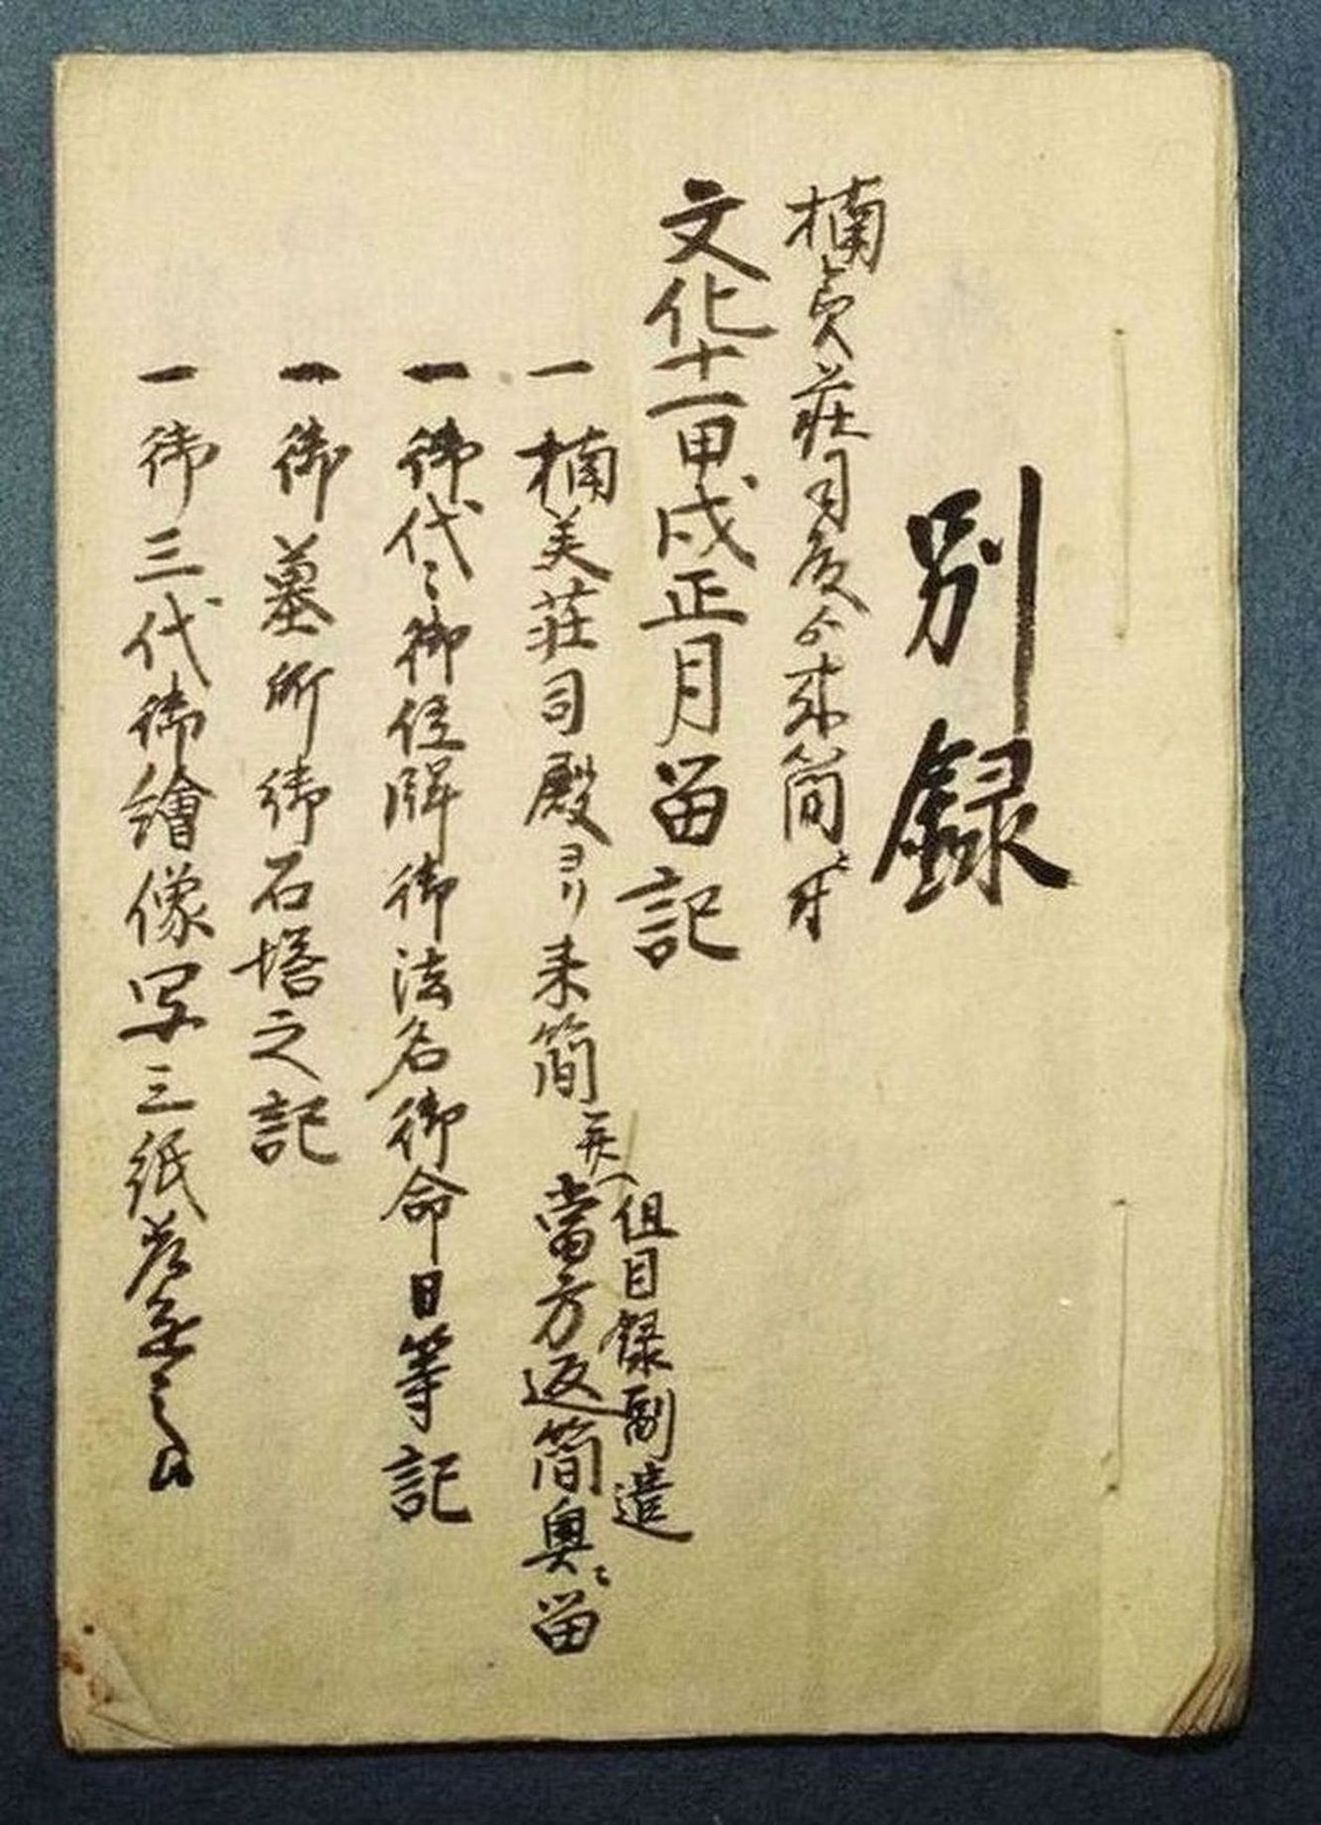 別録
楠美荘司殿ゟ来簡
文化十一甲戌正月留記
一 楠美荘司殿ヨリ来簡 當方返簡奥ニ留
但目録副遣
一 御代々御位牌御法名御命日等記
一 御墓所御石塔之記
一 御三代御繪像写三紙